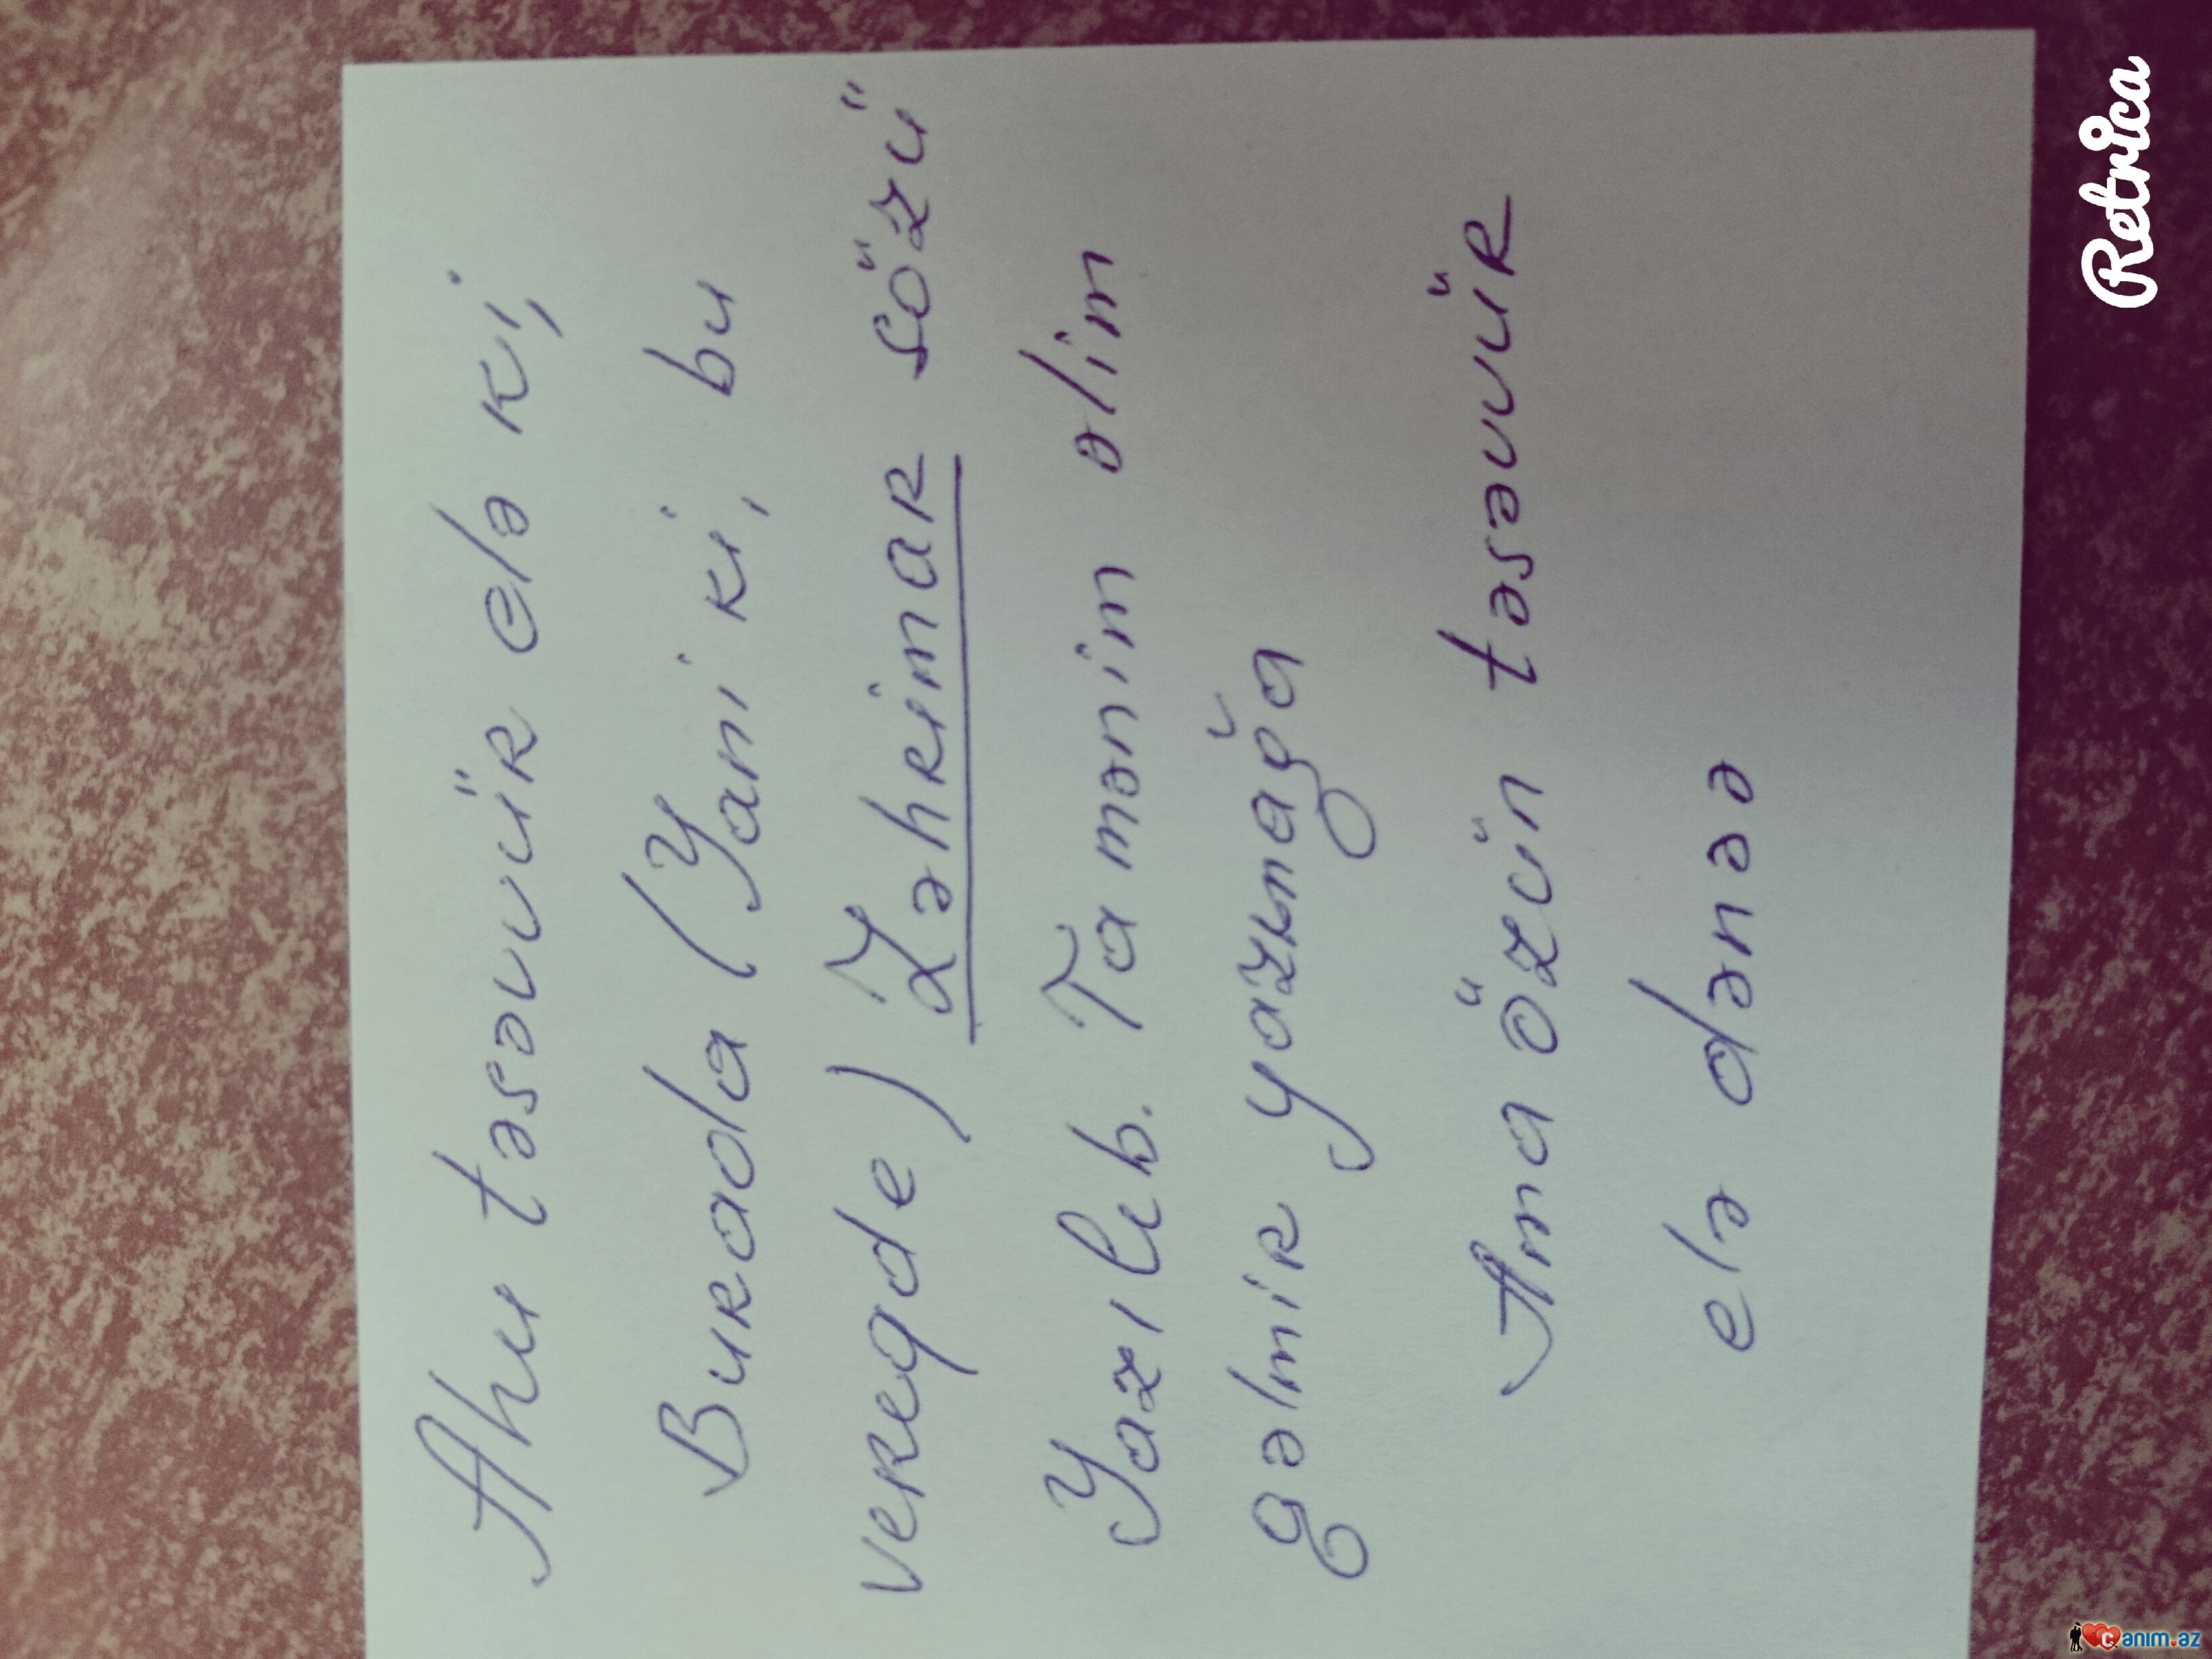 Ahu təsəvvür elə ki,
Burada (Yani ki, bu
vereqde) Zəhrimar sözü
Yazılıb. Ta mənim əlim
gəlmir yazmağa
Ama özün təsəvvür
elə dənəə
Retrica
canim.az